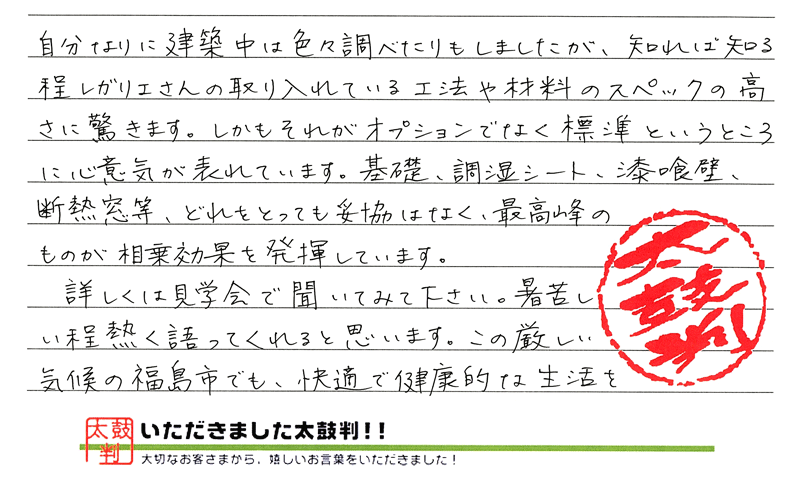 自分なりに建築中は色々調べたりもしましたが、知れば知る
程レガリエさんの取り入れている工法や材料のスペックの高
さに驚きます。しかもそれがオプションでなく標準というところ
に心意気が表れています。基礎、調湿シート、漆喰壁、
断熱窓等、どれをとっても妥協はなく、最高峰の
ものが相乗効果を発揮しています。
詳しくは見学会で聞いてみて下さい。暑苦し
い程熱く語ってくれると思います。この厳しい
気候の福島市でも、快適で健康的な生活を
太鼓判
太鼓判
いただきました太鼓判!!
大切なお客さまから、嬉しいお言葉をいただきました!